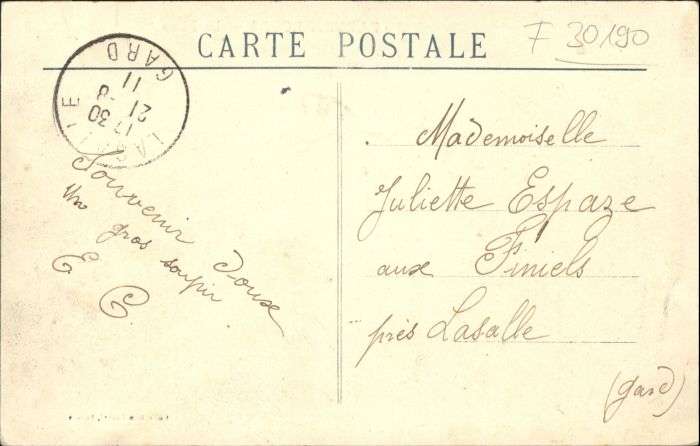 F 30190
CARTE POSTALE
LASALLE
17 30
21 -8
11
GARD
Souvenir doux
Un gros soupir
E C
Mademoiselle
Juliette Espaze
aux Finiels
près Lasalle
(Gard)